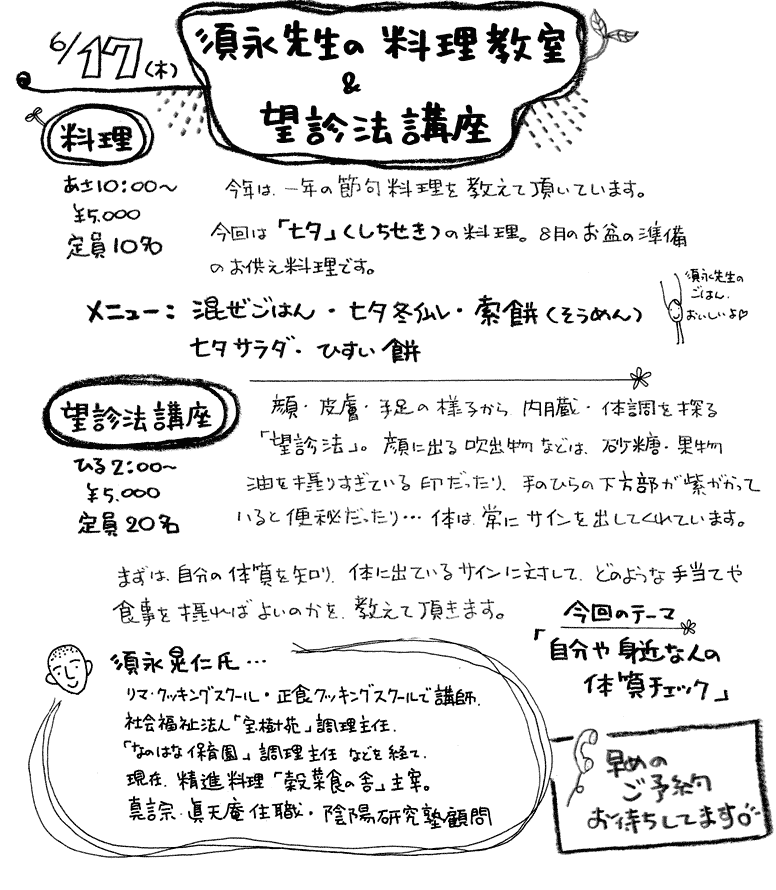 6/17(木)
須永先生の料理教室
&
望診法講座
料理
あさ10:00〜
¥5.000
定員10名
今年は、一年の節句料理を教えて頂いています。
今回は「七夕」(しちせき)の料理。8月のお盆の準備
のお供え料理です。
メニュー: 混ぜごはん・七夕冬仙し・索餅(そうめん)
七夕サラダ・ひすい餅
須永先生の
ごはん、
おいしいよ♡
望診法講座
ひる2:00〜
¥5.000
定員20名
顔・皮膚・手足の様子から、内臓・体調を探る
「望診法」。顔に出る吹出物などは、砂糖・果物
油を摂りすぎている印だったり、手のひらの下方部が紫がかって
いると便秘だったり…体は、常にサインを出してくれています。
まずは、自分の体質を知り、体に出ているサインに対して、どのような手当てや
食事を摂ればよいのかを、教えて頂きます。
今回のテーマ
「自分や身近な人の
体質チェック」
須永晃仁氏…
リマ・クッキングスクール・正食クッキングスクールで講師、
社会福祉法人「宝樹苑」調理主任、
「なのはな保育園」調理主任などを経て、
現在、精進料理「穀菜食の舎」主宰。
真言宗・眞天庵住職・陰陽研究塾顧問
早めの
ご予約
お待ちしてます